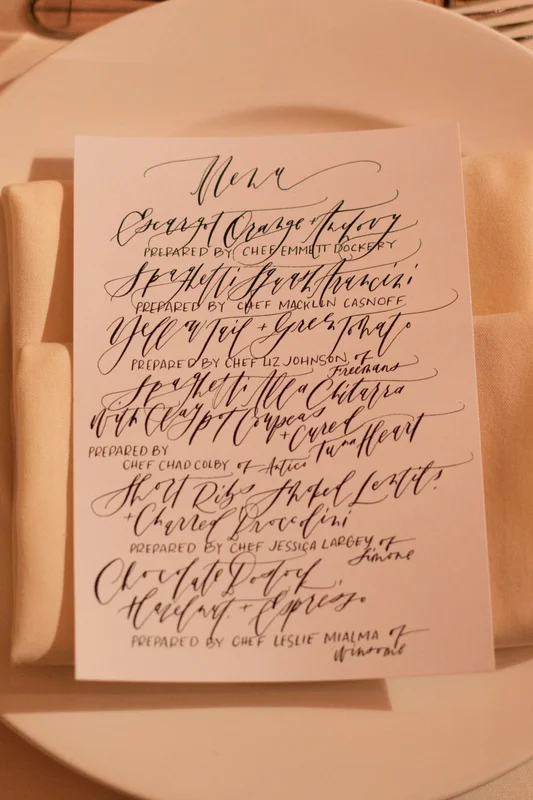 Menu
Escargot Orange + Anchovy
PREPARED BY CHEF EMMETT DOCKERY
Spaghetti Squash Francini
PREPARED BY CHEF MACKLIN CASNOFF
Yellowtail + Green Tomato
PREPARED BY CHEF LIZ JOHNSON of
Freemans
Spaghetti Alla Chitarra
with Clay Pot Cowpeas
+ Cured
Tuna Heart
PREPARED BY
CHEF CHAD COLBY of Antico
Short Ribs Lentils
+ Charred Broccolini
PREPARED BY CHEF JESSICA LARGEY of
Simone
Chocolate
Hazelnut + Espresso
PREPARED BY CHEF LESLIE MIALMA of
Winsome